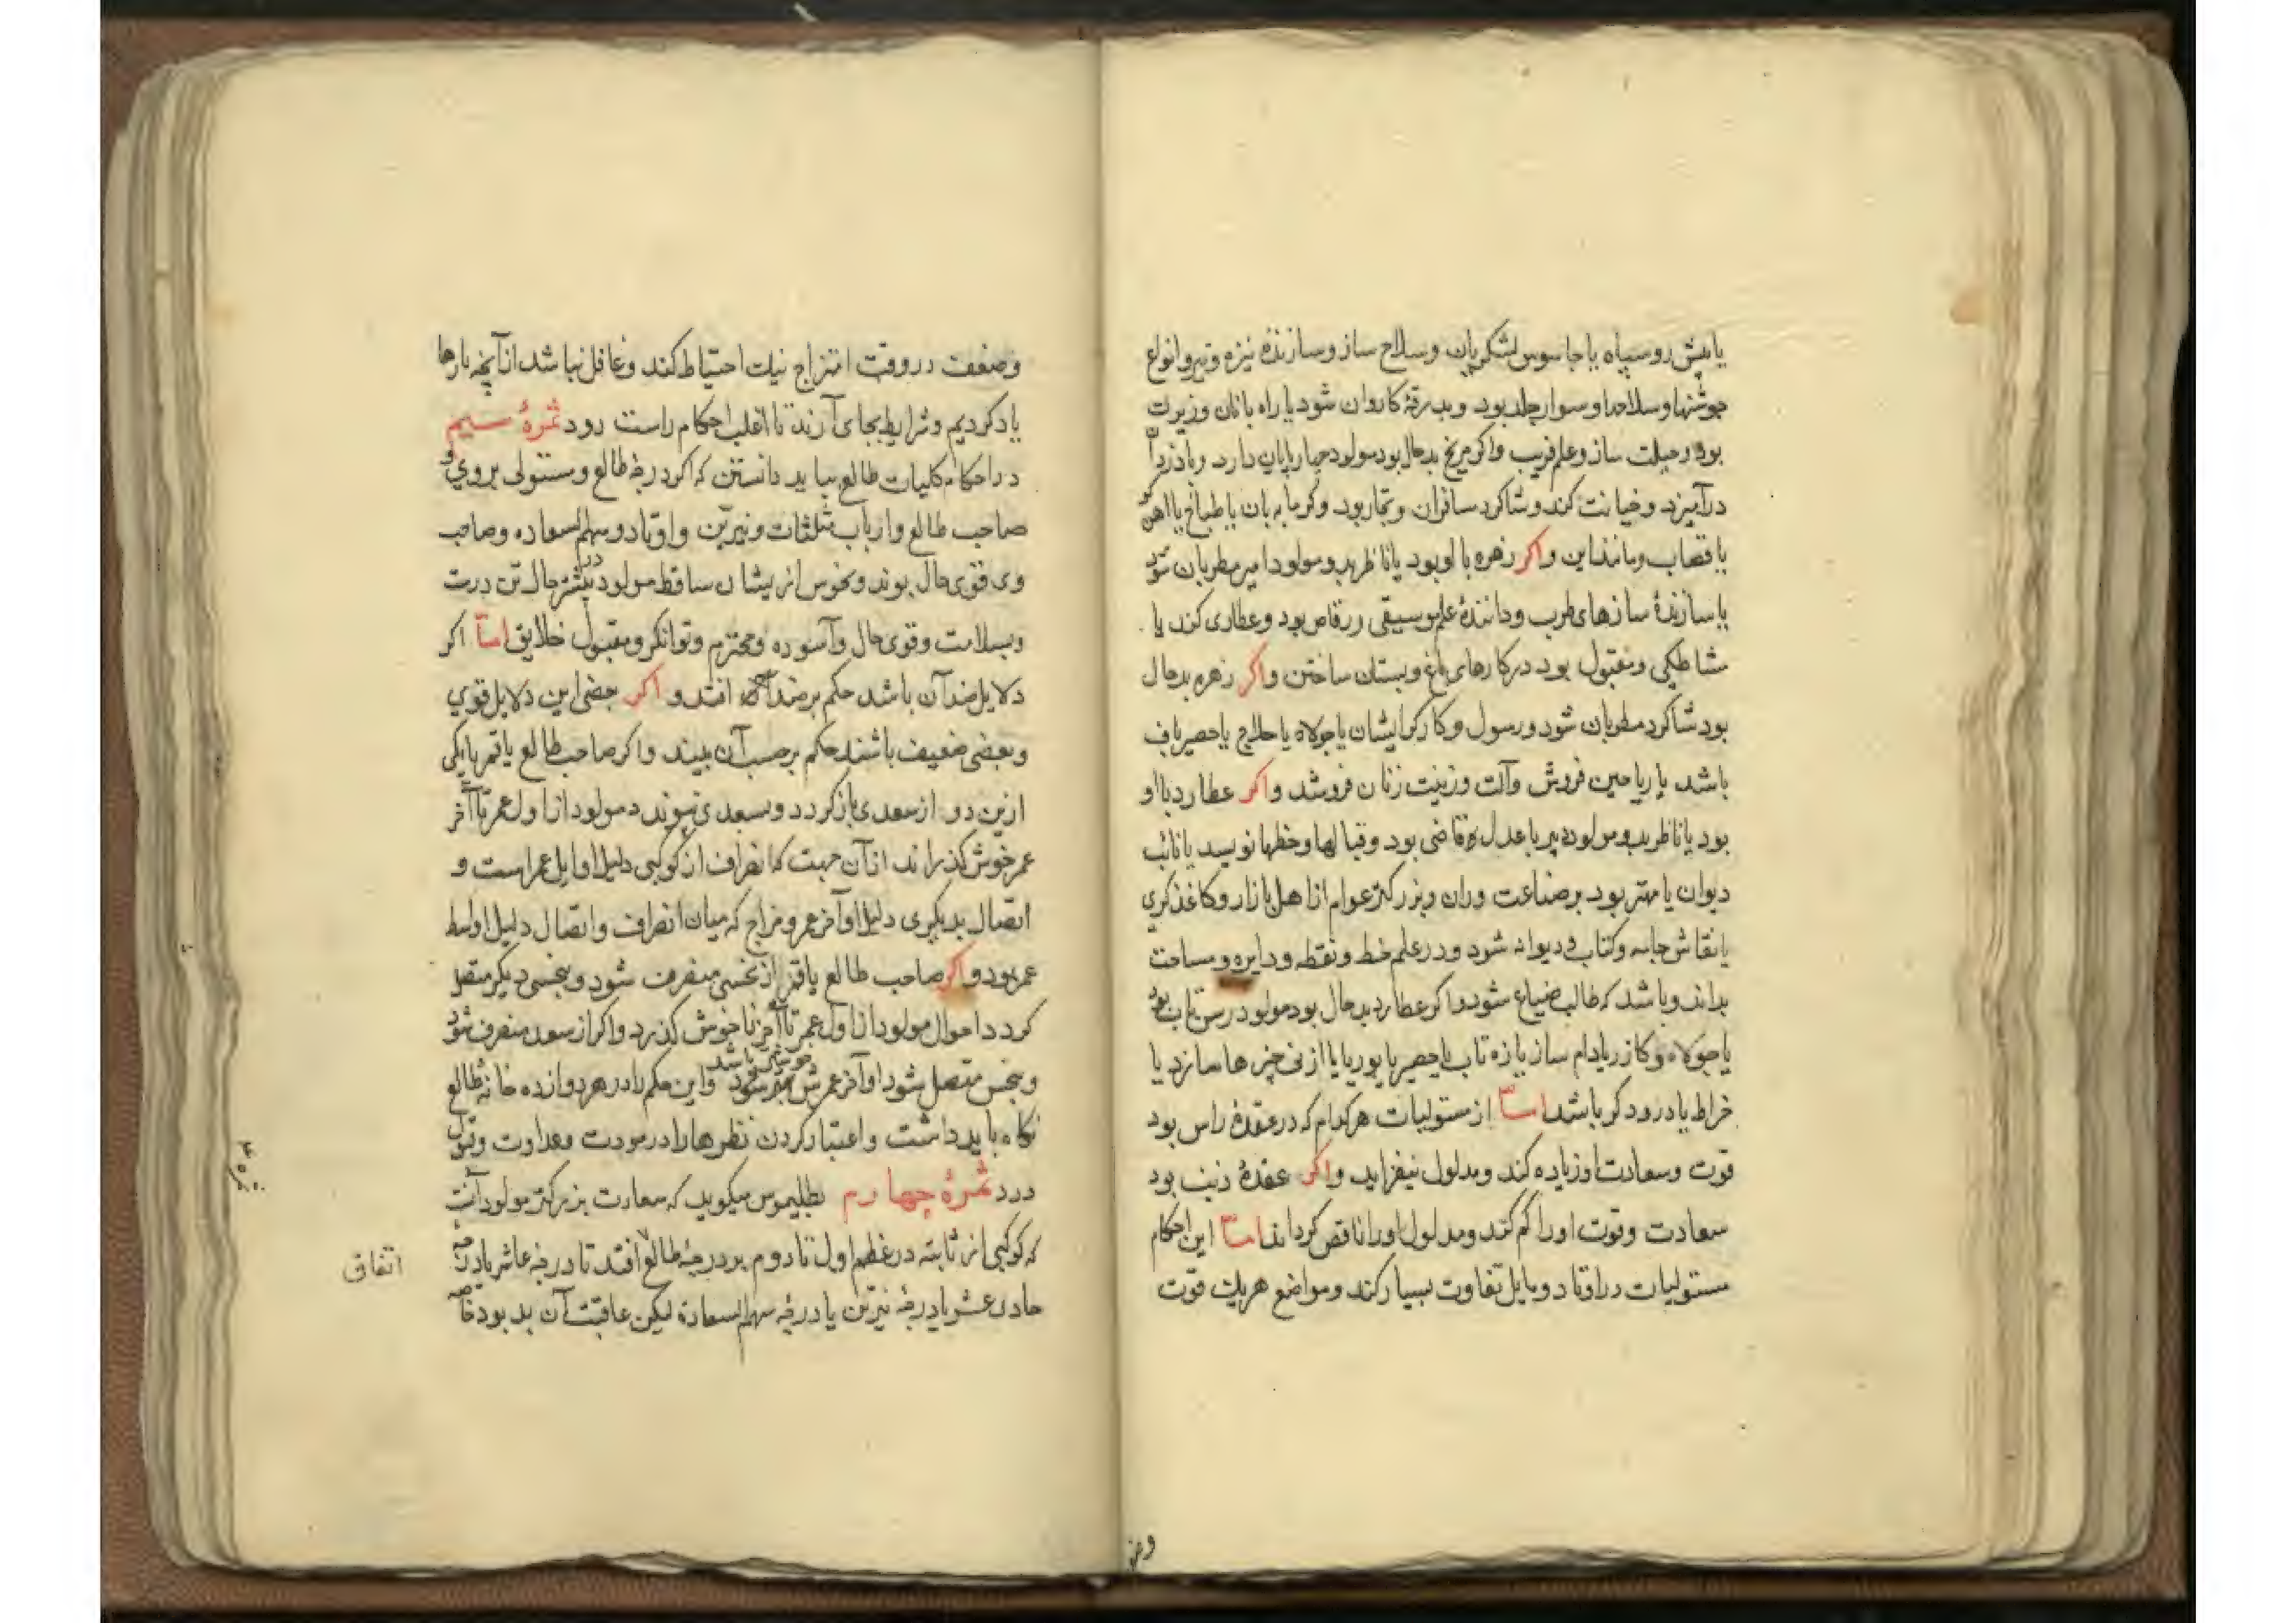 یا پیش رو سپاه یا جاسوس لشکریان وسلاح ساز وسازندهٔ نیزه وتیر وانواع
جوشنها وسلاحها وسوار جلد بود وبدرقهٔ کاروان شود یا راه بانان وزیرک
بود وحیلت ساز وعلم فریب واکر مریخ بدحال بود مولود چهارپایان دارد وبا دزدان
درآمیزد وخیانت کند وشاکرد سافران وتجار بود وکرمابه بان یا طباخ یا آهن
یا قصاب ومانند این واکر زهره با او بود یا ناظر بدو مولود امیر مطربان شود
یا سازندهٔ سازهای طرب ودانندهٔ علم موسیقی ورقاص بود وعطاری کند یا
مشاطکی ومقبول بود درکارهای باغ وبستان ساختن واکر زهره بدحال
بود شاکرد مطربان شود ورسول وکارکر ایشان یا جولاه یا حلاج یا حصیرباف
باشد یا ریاحین فروش وآلت وزینت زنان فروشد واکر عطارد با او
بود یا ناظر بدو مولود دبیر یا عدل قاضی بود وقبالها وخطها نویسد یا نائب
دیوان یا مهتر بود بر صناعت وران وبزرکتر عوام از اهل بازار وکاغذکری
یا نقاش جامه وکتاب ودیوانه شود ودر علم خط ونقطه ودایره ومساحت
بداند وباشد که طالب ضیاع شود واکر عطارد بدحال بود مولود رسن تاب بود
یا جولاه وکازر یا دام ساز یا زه تاب یا حصیر یا بوریا یا از نی چیزها سازد یا
خراط یا درودکر باشد اما از مستولیات هر کدام که در عقدهٔ راس بود
قوت وسعادت او زیاده کند ومدلول بیفزاید واکر عقدهٔ ذنب بود
سعادت وقوت او را کم کند ومدلول او را ناقص کرداند اما این احکام
مستولیات در اوتاد ومایل تفاوت بسیار کند ومواضع هریک قوّت
وض
وضعف در وقت امتزاج نیک احتیاط کند وغافل نباشد از آنچه بارها
یاد کردیم وشرایط بجای آرند تا اغلب احکام راست رود ثمرهٔ سیم
در احکام کلیات طالع بباید دانستن که اکر درجهٔ طالع ومستولی بر وی و
صاحب طالع وارباب مثلثات ونیرین واوتاد وسهم السعاده وصاحب
وی قوی حال بوند ونحوس از یشان ساقط مولود در بیشتر حال تن درست
وبسلامت وقوی حال وآسوده ومحترم وتوانکر ومقبول خلایق اما اکر
دلایل ضد آن باشد حکم بر ضد آن افتد واکر بعضی این دلایل قوی
وبعضی ضعیف باشند حکم برحسب آن بیند واکر صاحب طالع یا قمر یا یکی
ازین دو از سعدی باز کردد وبسعدی پیوندد مولود از اول عمر تا آخر
عمر خوش کذراند از آن جهت که انصراف از کوکبی دلیل اوایل عمر است و
اتصال بدیکری دلیل اواخر عمر ومزاج که میان انصراف واتصال دلیل اواسط
عمر بود واکر صاحب طالع یا قمر از نحسی منصرف شود وبنحسی دیکر متصل
کردد احوال مولود از اول عمر تا آخر ناخوش کذرد واکر از سعود منصرف شود
وبنحس متصل شود اواخر عمرش بتر شود واین حکم را در هر دوازده خانهٔ طالع
نکاه باید داشت واعتبار کردن نظرها را در مودت وعداوت وقبول
ورد ثمرهٔ چهارم بطلیموس میکوید که سعادت بزرکتر مولود آنست
که کوکبی از ثابته در عظم اول تا دوم بر درجهٔ طالع افتد تا درجهٔ عاشر یا درجهٔ
حادی عشر یا درجهٔ نیرین یا درجهٔ سهم السعادة لیکن عاقبت آن بد بود خاصه
اتفاق